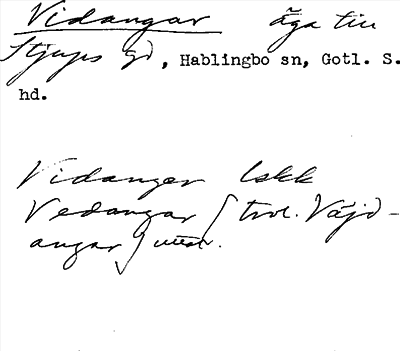 Vidangar äga till
Stjups gd, Hablingbo sn, Gotl. S.
hd.
Vidanger Lskk
Vedangar / trol. Väjd-
angar / utt.